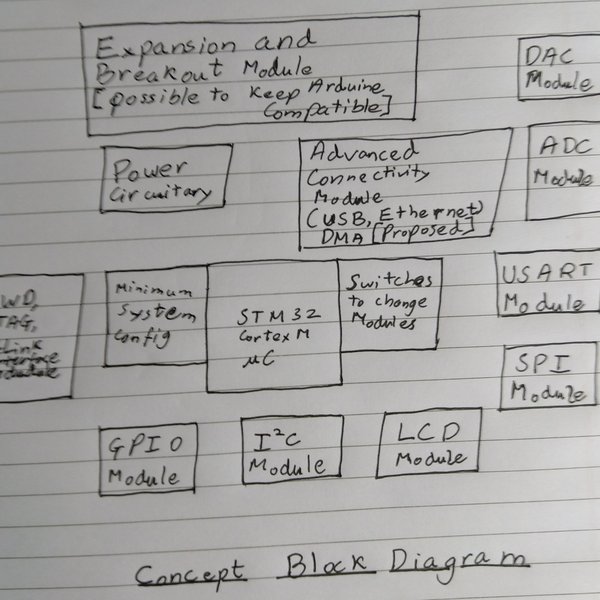 Expansion and
Breakout Module
[possible to keep Arduino
Compatible]
DAC
Module
Power
Circuitary
Advanced
Connectivity
Module
(USB, Ethernet)
DMA [Proposed]
ADC
Module
WD,
TAG,
Link
nterface
Module
Minimum
System
Config
STM32
Cortex M
µC
Switches
to change
Modules
USART
Module
SPI
Module
GPIO
Module
I²C
Module
LCD
Module
Concept Block Diagram